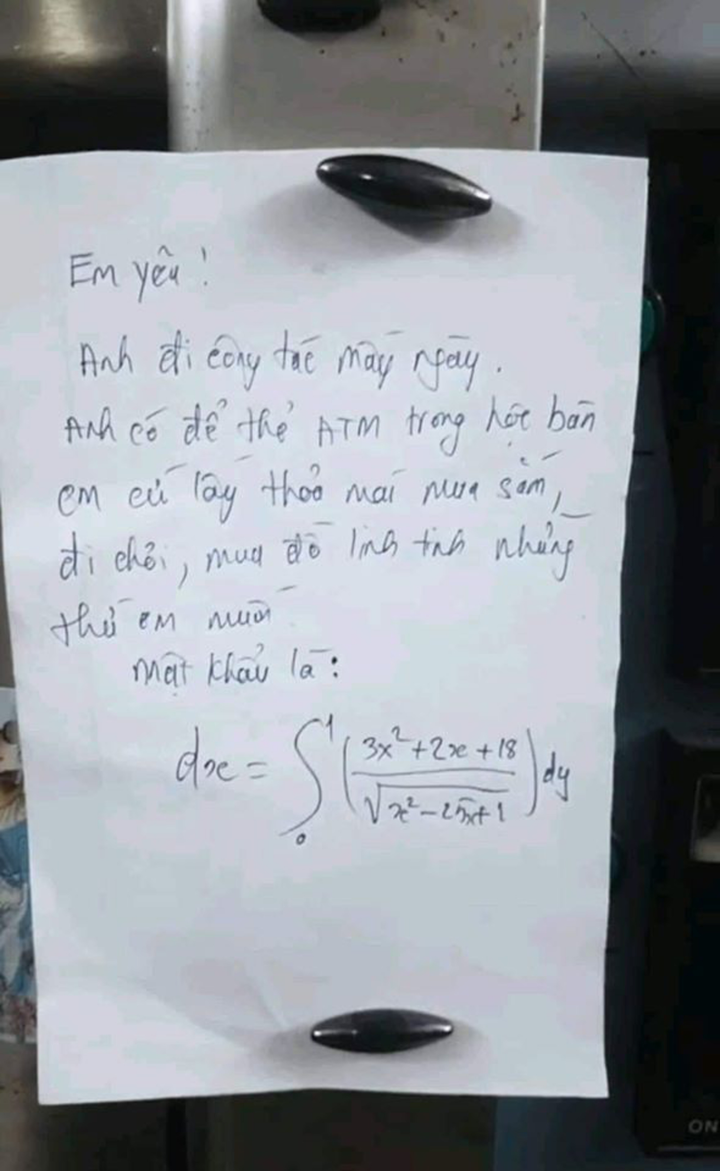 Em yêu!
Anh đi công tác mấy ngày.
Anh có để thẻ ATM trong hộc bàn
em cứ lấy thoả mái mua sắm,
đi chơi, mua đồ linh tinh những
thứ em muốn
mật khẩu là:
dx = ∫₀¹ ((3x²+2x+18)/√(x²-25x+1)) dy
ON